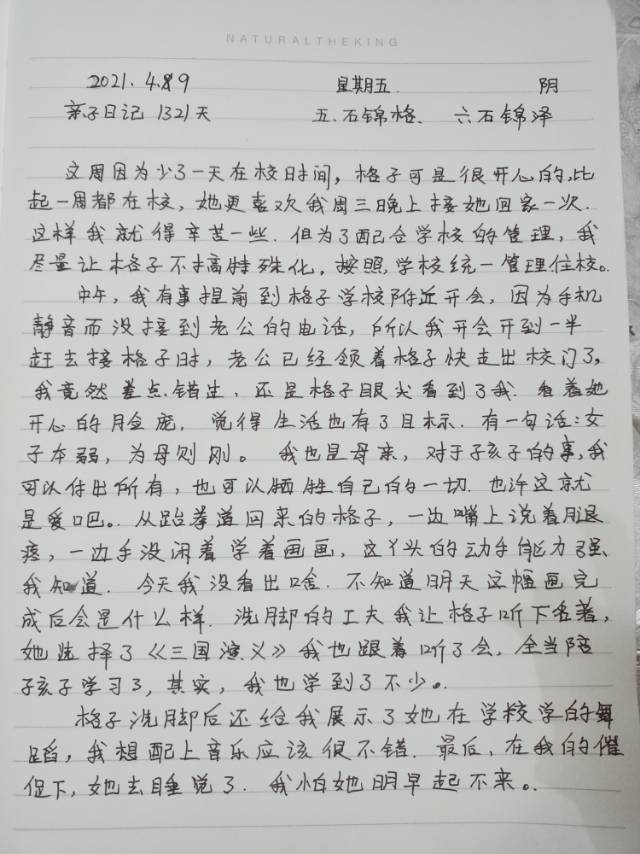 NATURALTHEKING
2021. 4.9 星期五 阴
亲子日记 1321天 五.石锦格. 六石锦泽
这周因为少了一天在校时间，格子可是很开心的，比
起一周都在校，她更喜欢我周三晚上接她回家一次.
这样我就得辛苦一些. 但为了配合学校的管理，我
尽量让格子不搞特殊化，按照，学校统一管理住校。
中午，我有事提前到格子学校附近开会，因为手机
静音而没接到老公的电话，所以我开会开到一半
赶去接格子时，老公已经领着格子快走出校门了，
我竟然差点错过，还是格子眼尖看到了我. 看着她
开心的脸庞，觉得生活也有了目标. 有一句话：女
子本弱，为母则刚。 我也是母亲，对于孩子的事，我
可以付出所有，也可以牺牲自己的一切. 也许这就
是爱吧。从跆拳道回来的格子，一边嘴上说着腿
疼，一边手没闲着学着画画，这丫头的动手能力强
我知道. 今天我没看出啥. 不知道明天这幅画完
成后会是什么样. 洗脚的工夫我让格子听下名著，
她选择了《三国演义》我也跟着听了会，全当陪
孩子学习了，其实，我也学到了不少。
格子洗脚后还给我展示了她在学校学的舞
蹈，我想配上音乐应该很不错. 最后，在我的催
促下，她去睡觉了. 我怕她明早起不来。